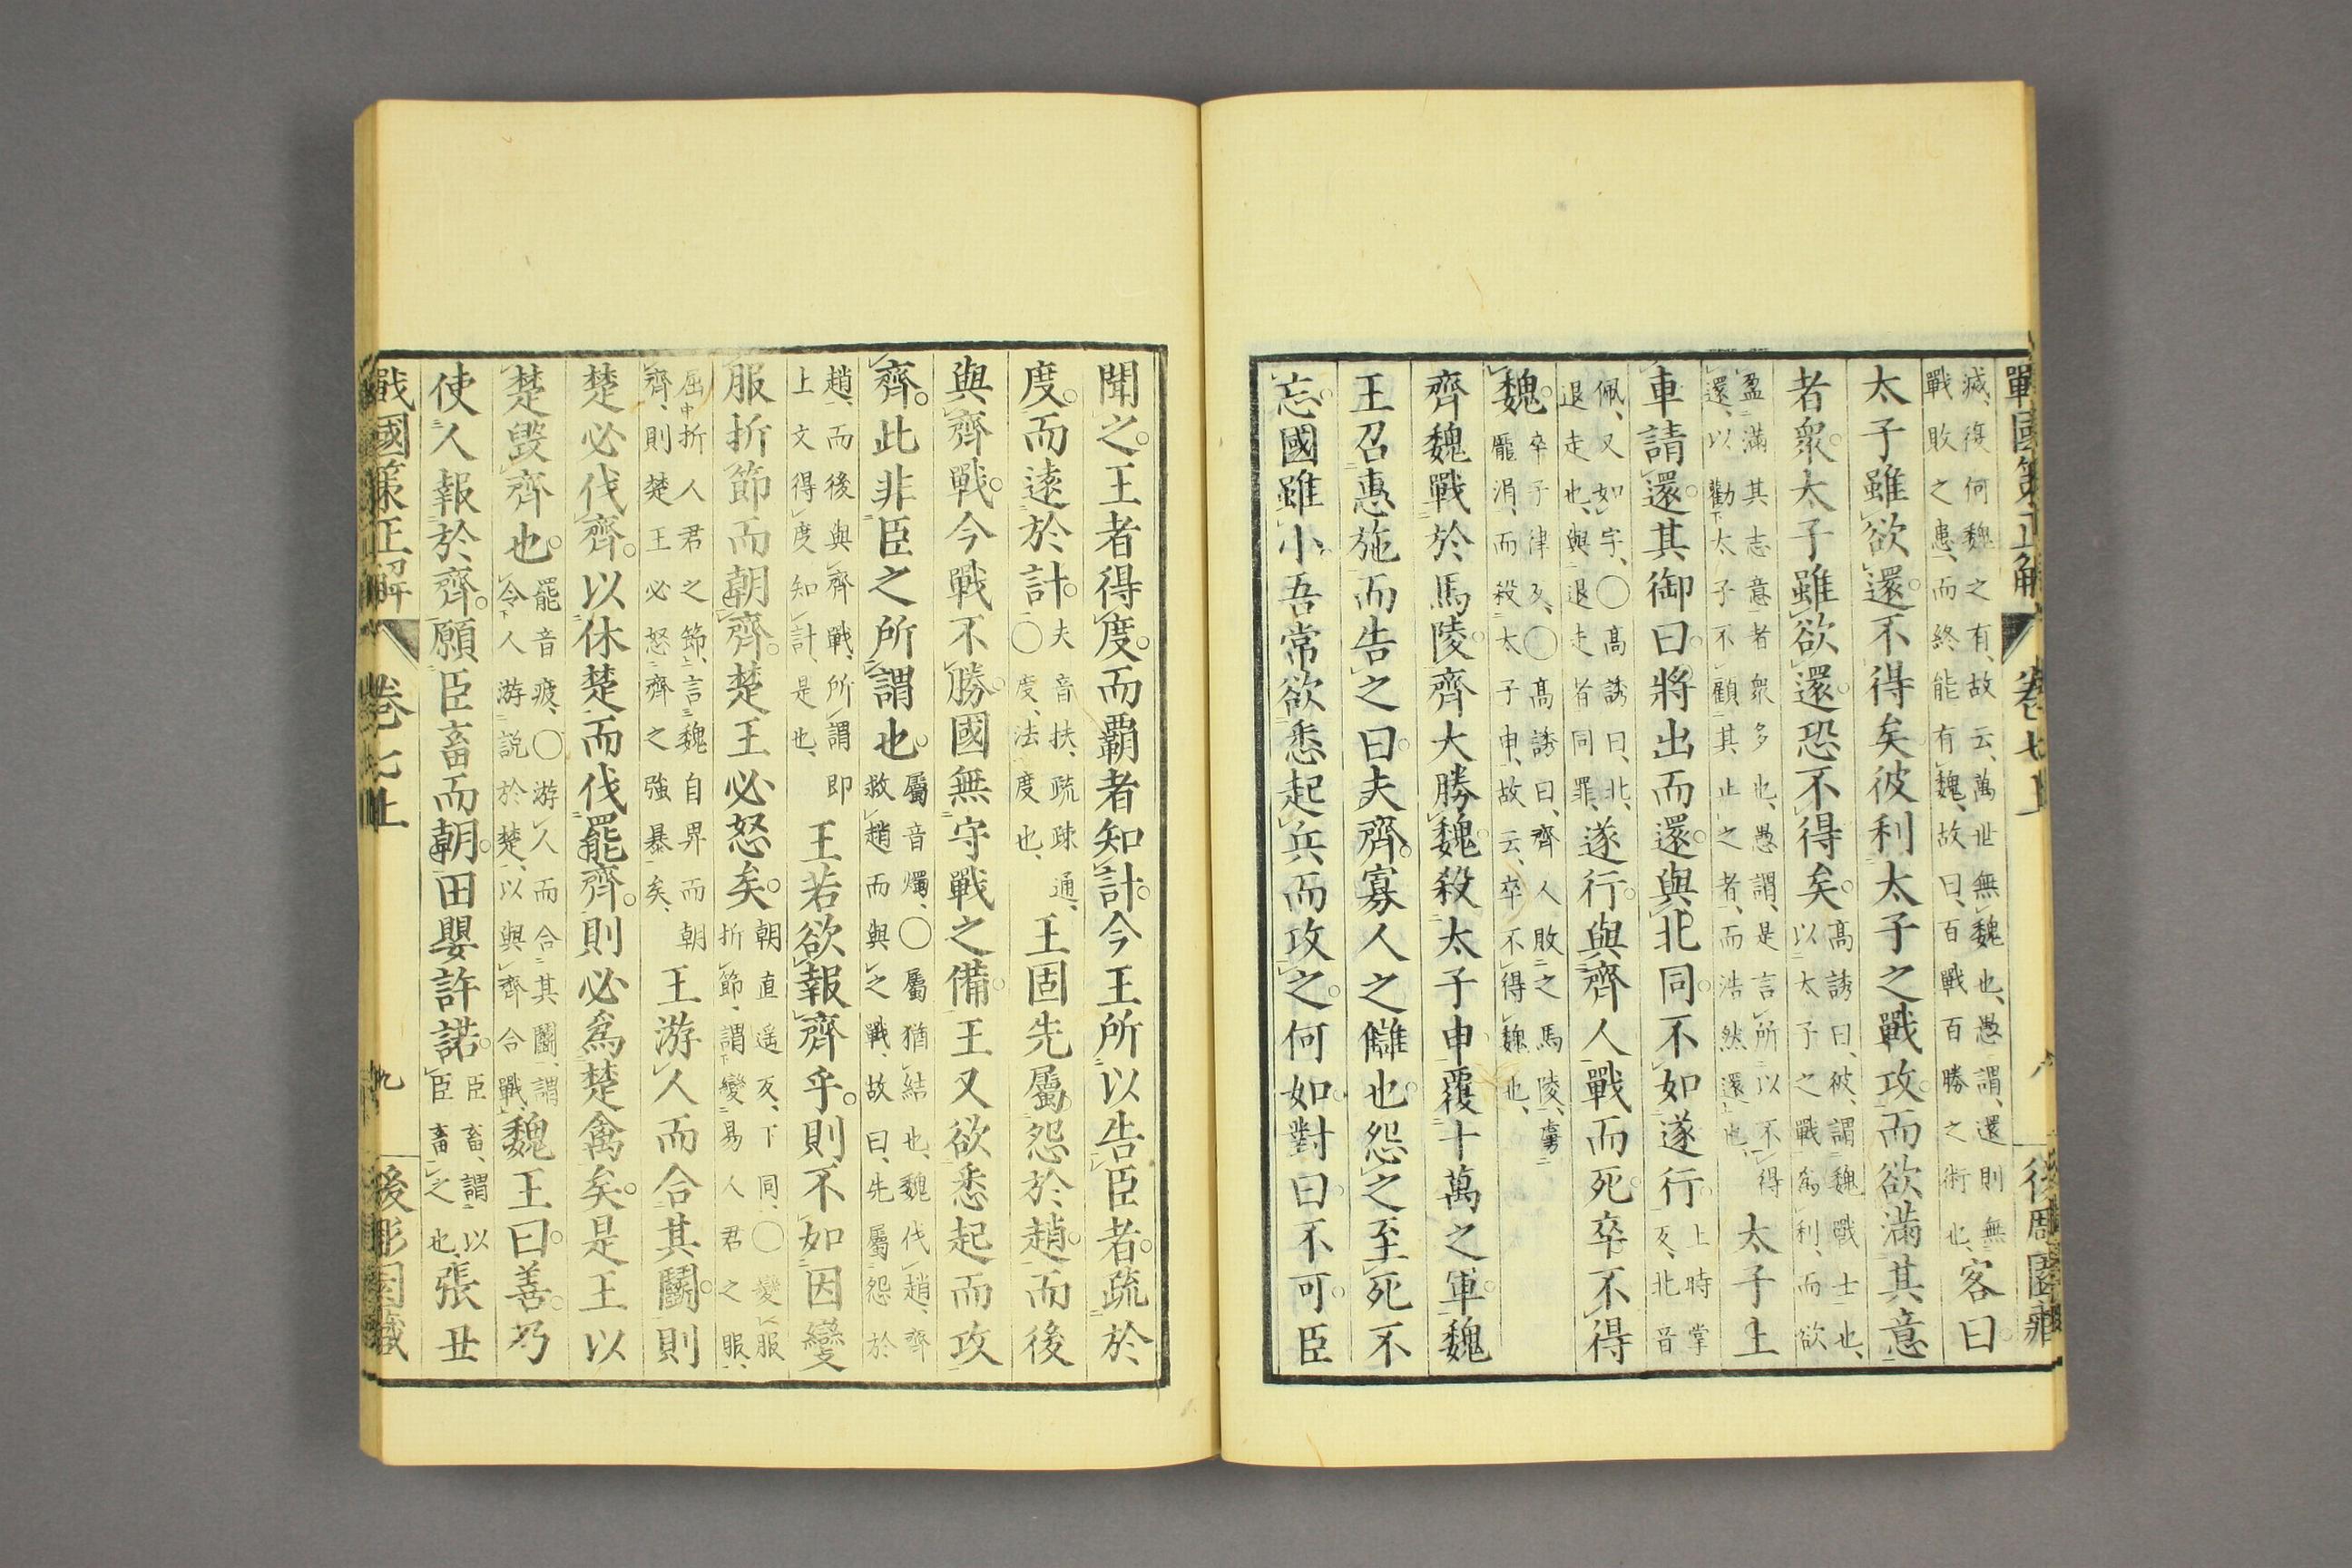 戰國策正解　卷七上　八　後周園藏
減、復何魏之有、故云、萬世無魏也、愚謂、還則無
戰敗之患、而終能有魏、故曰、百戰百勝之術也、客曰
太子雖欲還。不得矣彼利太子之戰攻。而欲滿其意
者衆。太子雖欲還。恐不得矣。高誘曰、彼、謂魏戰士也、
以太子之戰爲利、而欲
盈滿其志意者衆多也、愚謂、是言所以不得
還、以勸太子不顧其止之者、而浩然還也、太子上
車請還。其御曰。將出而還。與北同。不如遂行。上時掌
反、北音
佩、又如字、〇高誘曰、北、
退走也、與退走者同罪、遂行。與齊人戰而死。卒不得
魏。卒子律反、〇高誘曰、齊人敗之馬陵、虜
龐涓、而殺太子申、故云、卒不得魏也、
齊魏戰於馬陵。齊大勝魏。殺太子申。覆十萬之軍。魏
王召惠施而告之曰。夫齊。寡人之讎也。怨之至死不
忘。國雖小。吾常欲悉起兵而攻之。何如。對曰。不可。臣
聞之。王者得度。而霸者知計。今王所以告臣者。疏於
度。而遠於計。夫音扶、疏疎通、
〇度、法度也、王固先屬怨於趙。而後
與齊戰。今戰不勝。國無守戰之備。王又欲悉起而攻
齊。此非臣之所謂也。屬音燭、〇屬猶結也、魏伐趙、齊
救趙而與之戰、故曰、先屬怨於
趙、而後與齊戰、所謂即
上文得度知計、是也、王若欲報齊乎。則不如因變
服折節而朝齊。楚王必怒矣。朝直遥反、下同、〇變服
折節、謂變易人君之服、
屈折人君之節、言魏自畀而朝
齊、則楚王必怒齊之強暴矣、王游人而合其鬭。則
楚必伐齊。以休楚而伐罷齊。則必爲楚禽矣。是王以
楚毀齊也。罷音疲、〇游人而合其鬭、謂
令人游説於楚、以與齊合戰、魏王曰。善。乃
使人報於齊。願臣畜而朝。田嬰許諾。臣畜、謂以
臣畜之也、張丑
戰國策正解　卷七上　九　後彫園藏